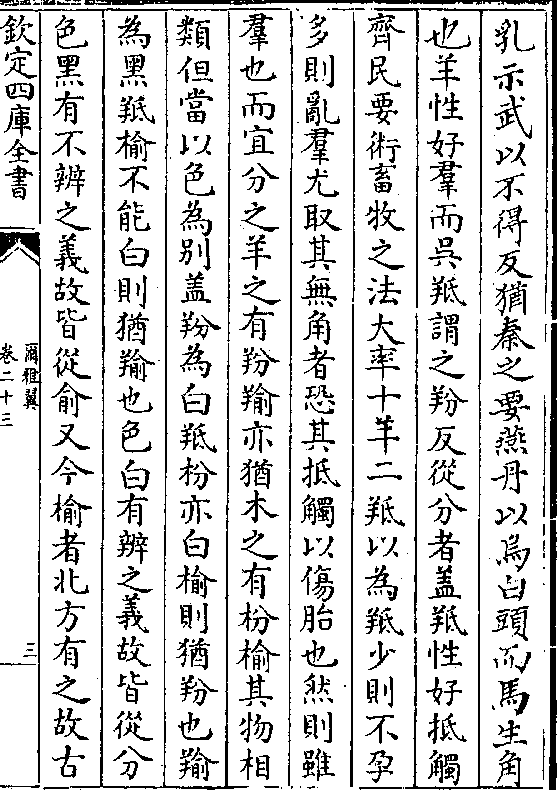 乳示武以不得反猶秦之要燕丹以烏白頭而馬生角
也羊性好羣而吳羝謂之羒反從分者盖羝性好抵觸
齊民要術畜牧之法大率十羊二羝以為羝少則不孕
多則亂羣尤取其無角者恐其抵觸以傷胎也然則雖
羣也而宜分之羊之有羒羭亦猶木之有枌榆其物相
類但當以色為别盖羒為白羝枌亦白榆則猶羒也羭
為黑羝榆不能白則猶羭也色白有辨之義故皆從分
色黑有不辨之義故皆從俞又今榆者北方有之故古
欽定四庫全書
爾雅翼
卷二十三
三